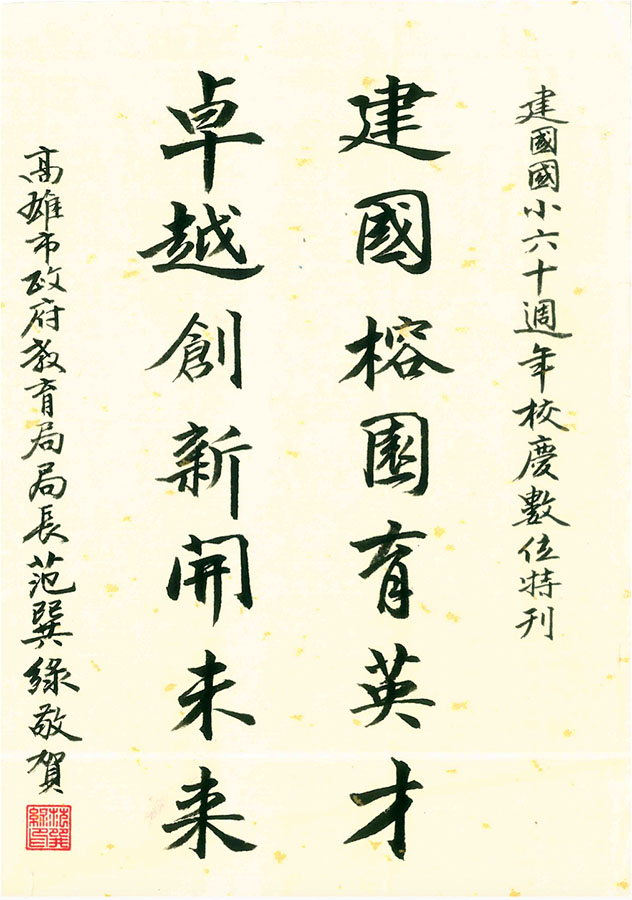 建國國小六十週年校慶數位特刊
建國榕園育英才
卓越創新開未来
高雄市政府教育局局長范巽綠敬賀